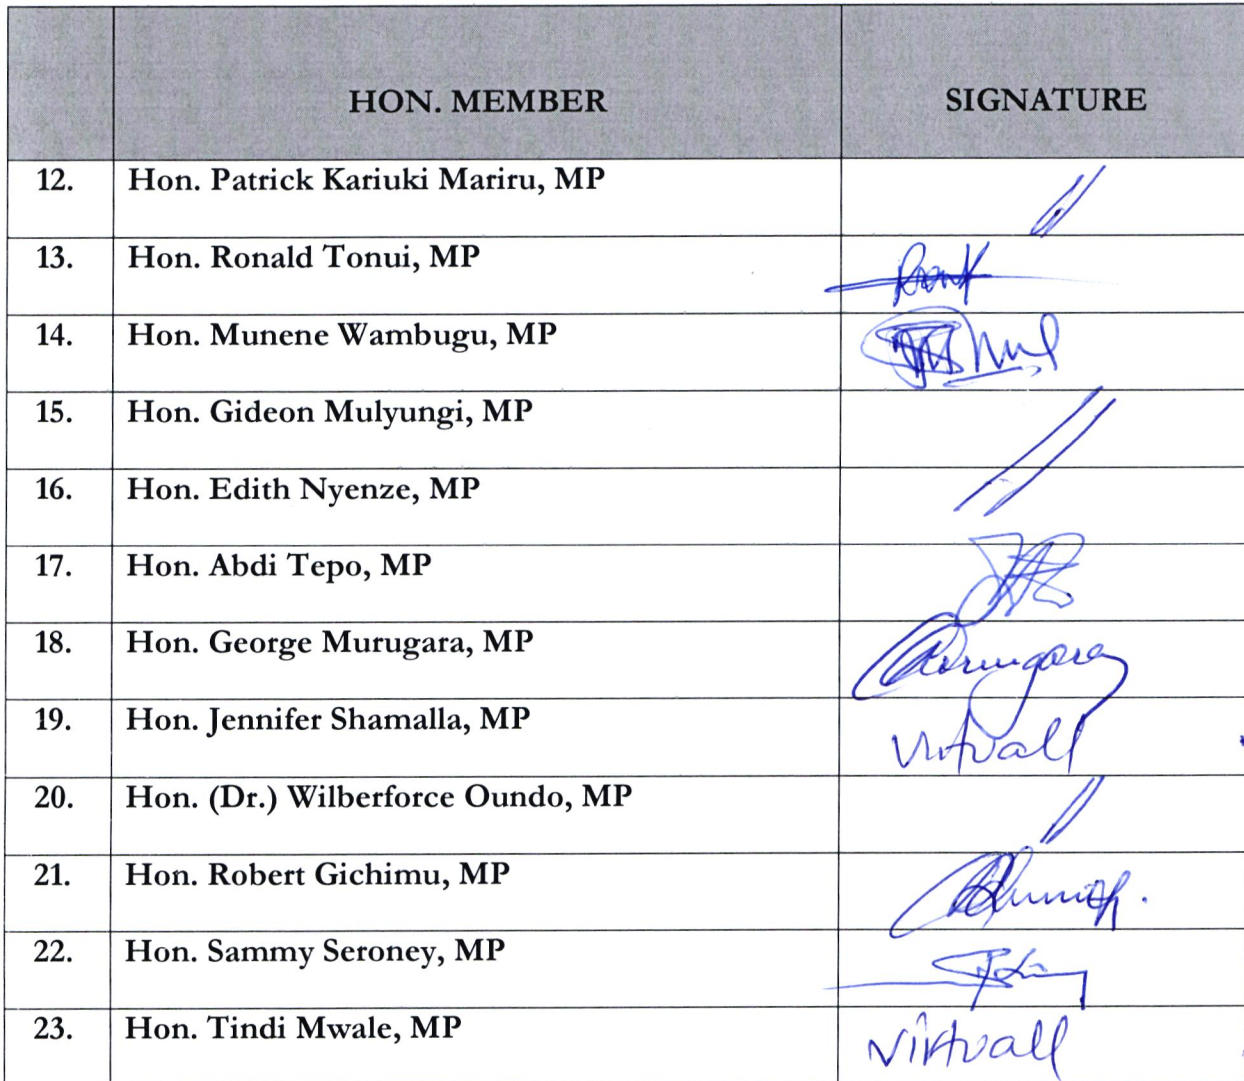 HON. MEMBER SIGNATURE
12. Hon. Patrick Kariuki Mariru, MP
13. Hon. Ronald Tonui, MP
14. Hon. Munene Wambugu, MP
15. Hon. Gideon Mulyungi, MP
16. Hon. Edith Nyenze, MP
17. Hon. Abdi Tepo, MP
18. Hon. George Murugara, MP
19. Hon. Jennifer Shamalla, MP Virtuall
20. Hon. (Dr.) Wilberforce Oundo, MP
21. Hon. Robert Gichimu, MP
22. Hon. Sammy Seroney, MP
23. Hon. Tindi Mwale, MP Virtuall